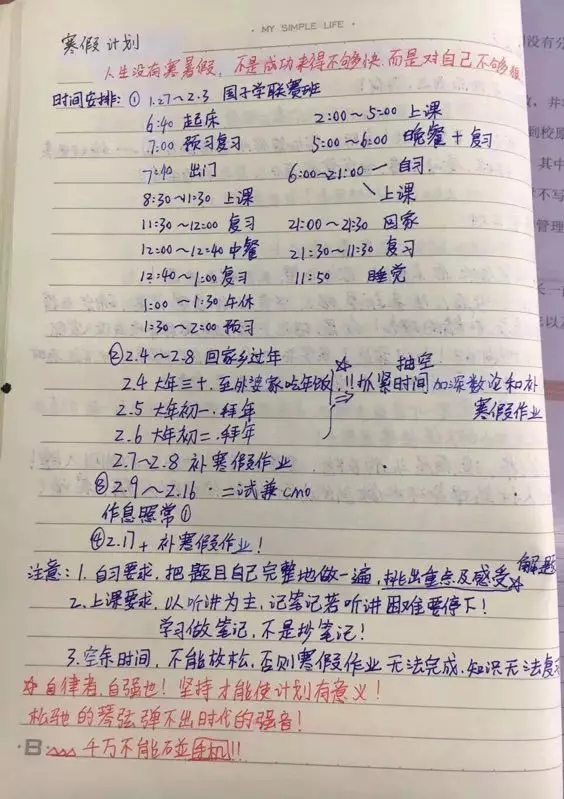 MY SIMPLE LIFE
寒假计划
人生没有寒暑假，不是成功来得不够快，而是对自己不够狠
时间安排：① 1.27～2.3 国子学联赛班
6:40 起床 2:00～5:00 上课
7:00 预习复习 5:00～6:00 晚餐+复习
7:40 出门 6:00～21:00 自习
8:30～11:30 上课 上课
11:30～12:00 复习 21:00～21:30 回家
12:00～12:40 中餐 21:30～11:30 复习
12:40～1:00 复习 11:50 睡觉
1:00～1:30 午休
1:30～2:00 预习
②2.4～2.8 回家乡过年 抽空
2.4 大年三十．至外婆家吃年饭 !!抓紧时间 加深数论和补
2.5 大年初一．拜年 寒假作业
2.6 大年初二．拜年
2.7～2.8 补寒假作业
③2.9～2.16 · 二试兼cmo
作息照常①
④2.17+ 补寒假作业！
注意：1. 自习要求，把题目自己完整地做一遍，挑出重点及感受 解题
2. 上课要求，以听讲为主，记笔记若听讲困难要停下！
学习做笔记，不是抄笔记！
3. 空余时间，不能放松，否则寒假作业无法完成，知识无法复
☆自律者，自强也！坚持才能使计划有意义！
松弛的琴弦弹不出时代的强音！
B 千万不能碰手机!!!